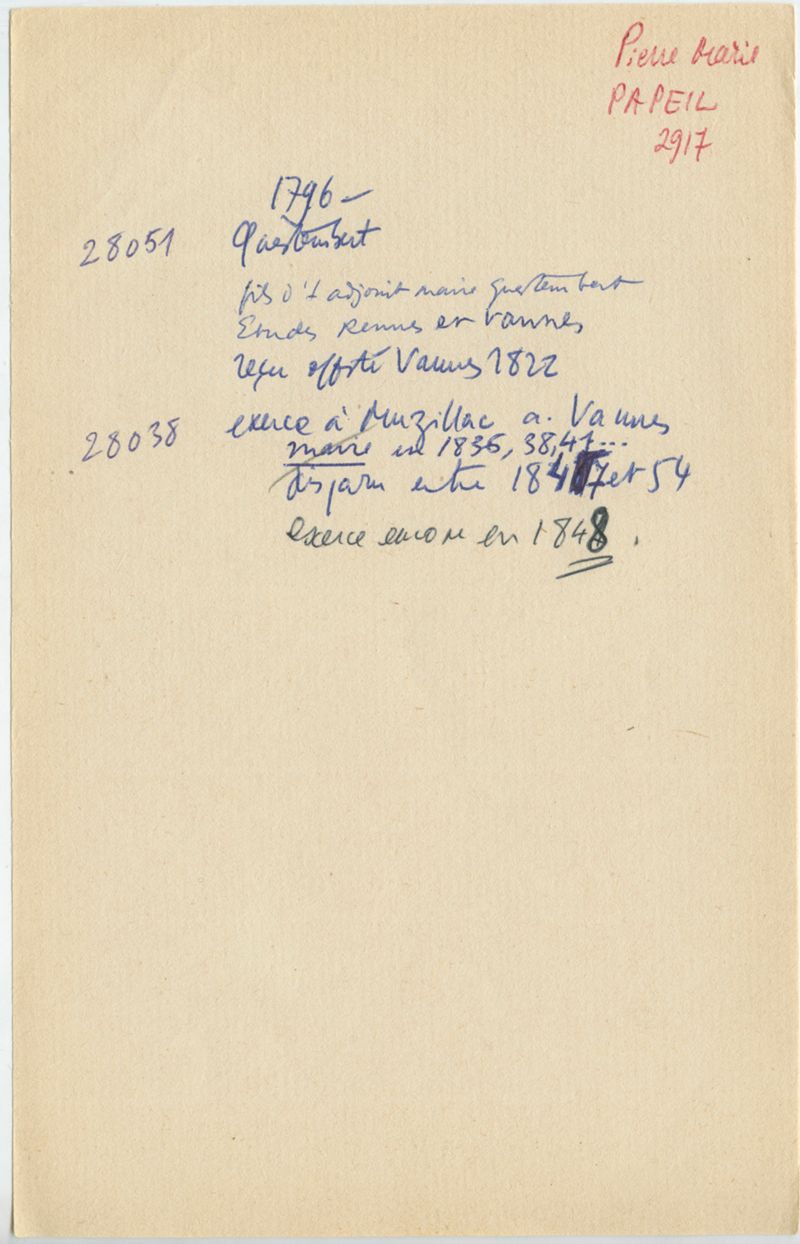 Pierre Marie
PAPEIL
2917
1796 –
28051 Questembert
fils d'1 adjoint maire Questembert
Etudes Rennes et Vannes
reçu offté Vannes 1822
28038 exerce à Muzillac a. Vannes
maire en 1836, 38, 41 ...
disparu entre 1847 et 54
exerce encore en 1848.